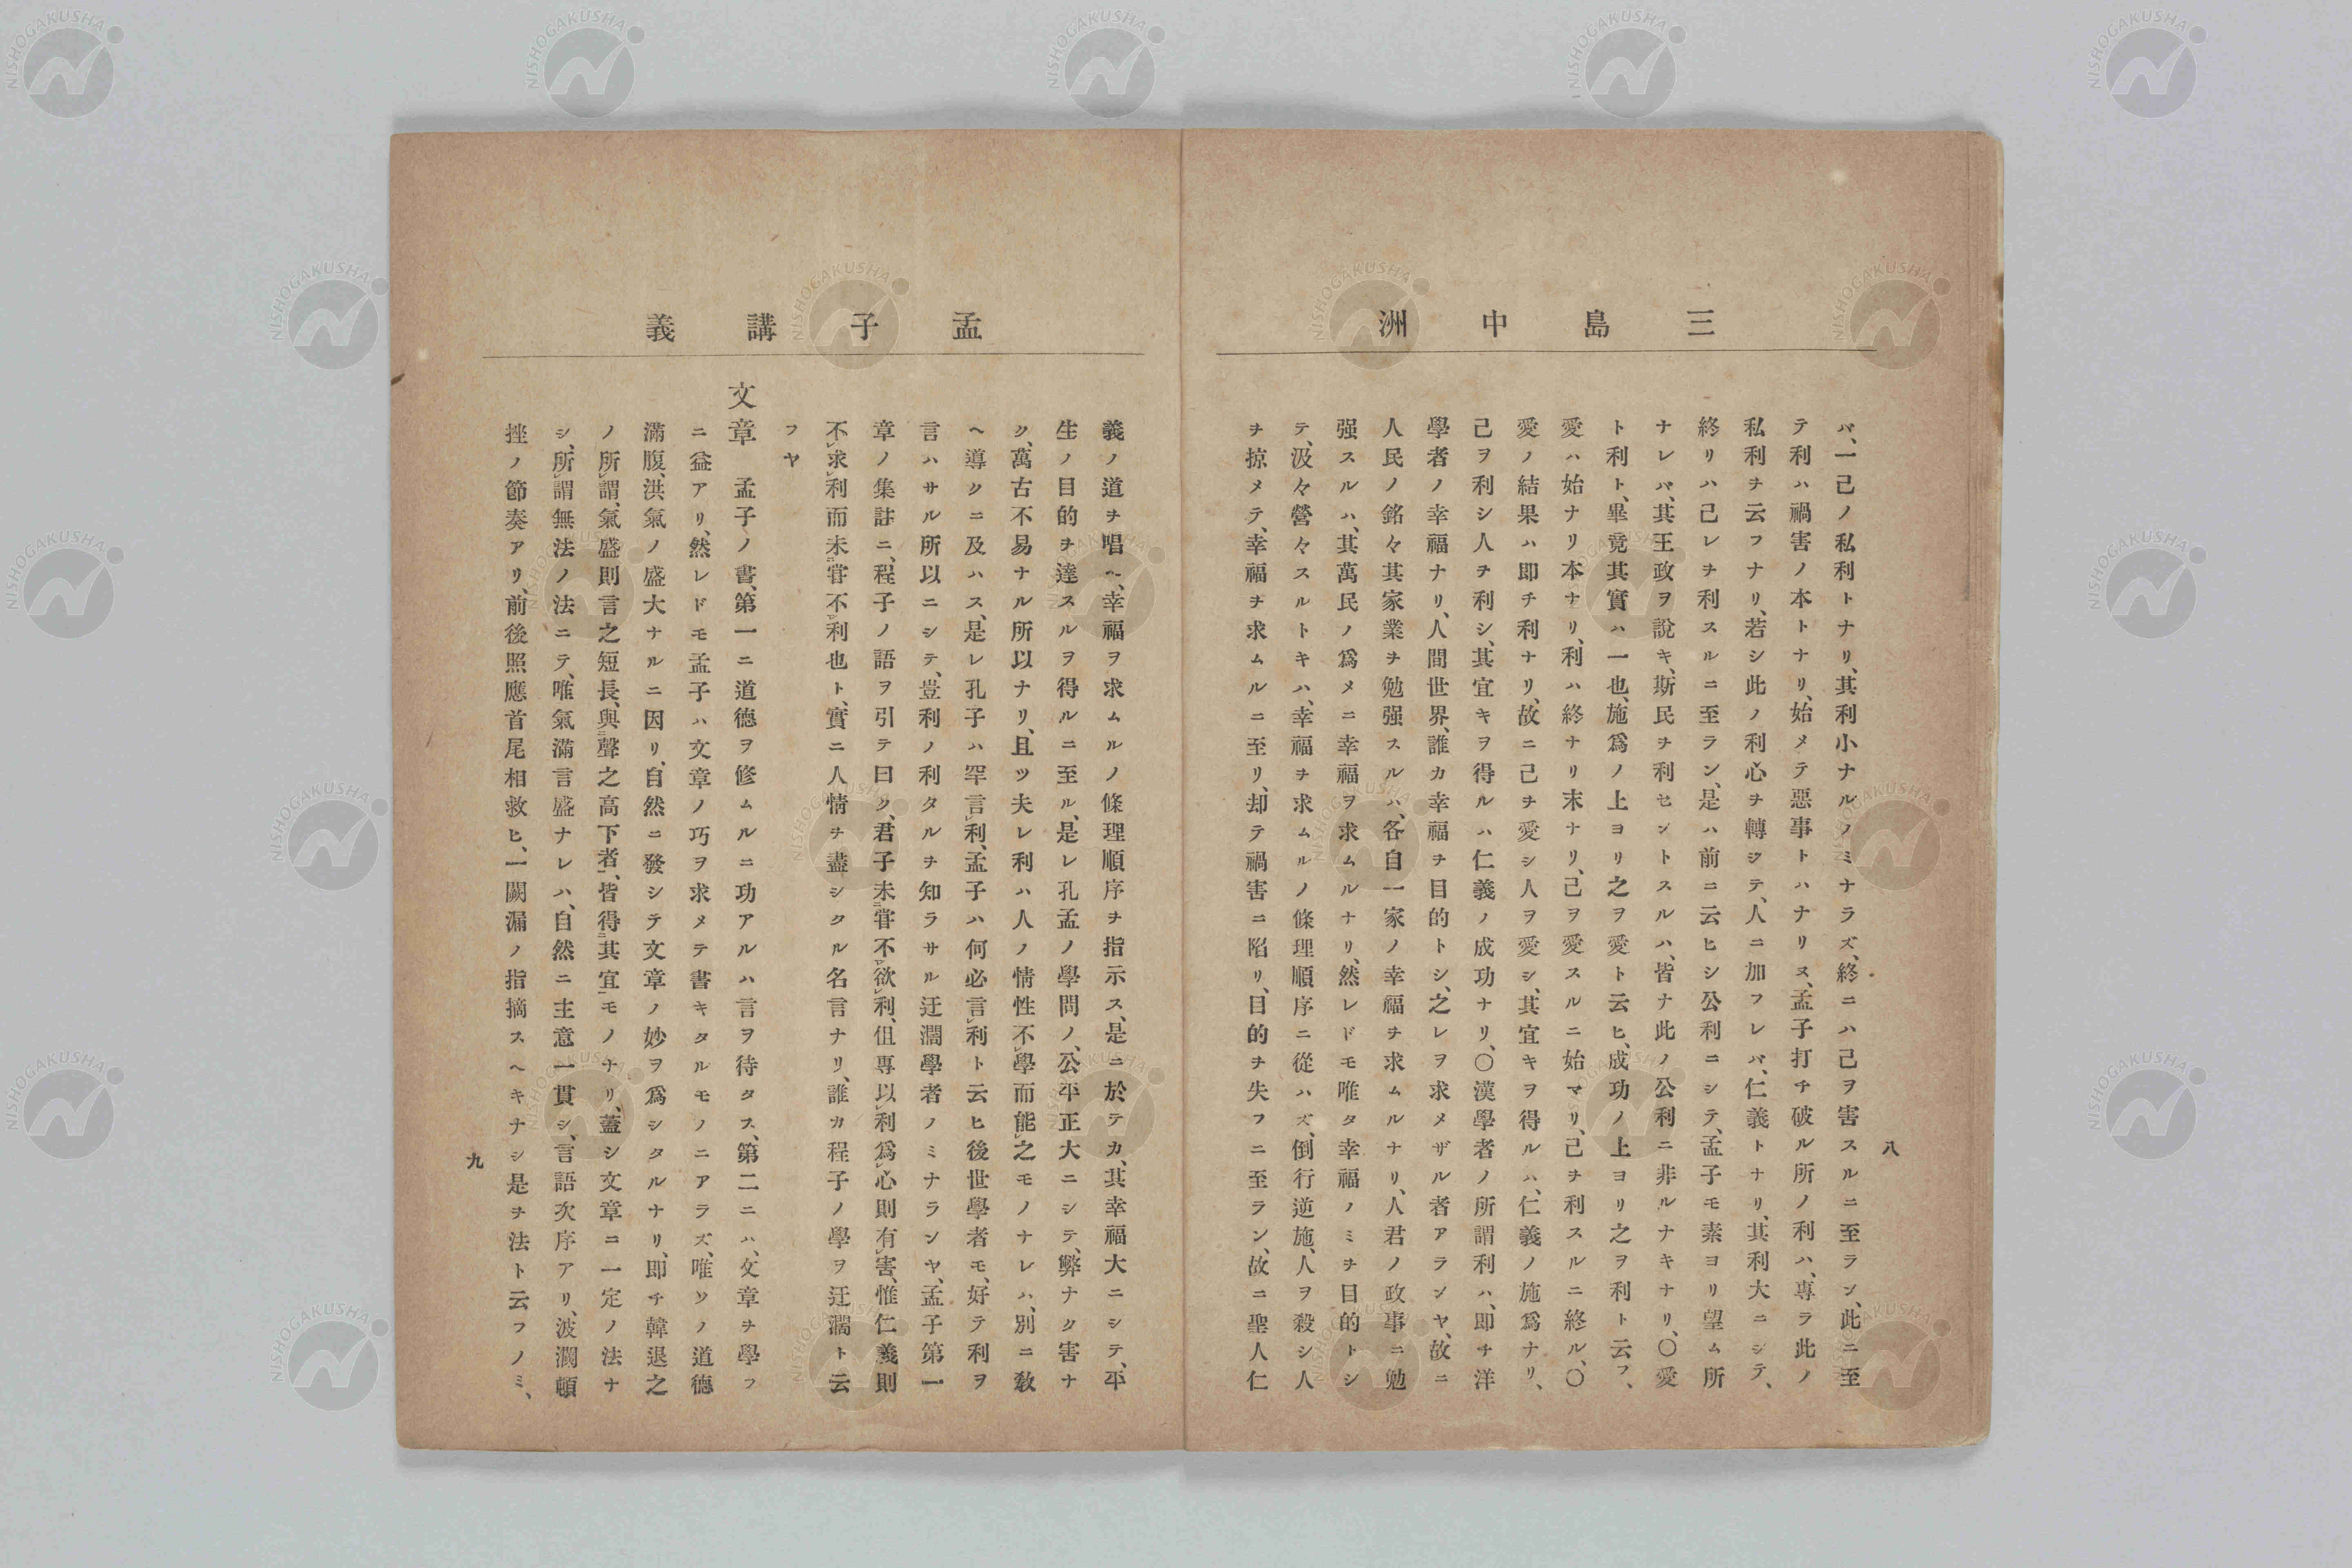 三島中洲
バ、一己ノ私利トナリ、其利小ナルノミナラズ、終ニハ己ヲ害スルニ至ラン、此ニ至
テ利ハ禍害ノ本トナリ、始メテ惡事トハナリヌ、孟子打チ破ル所ノ利ハ、專ラ此ノ
私利チ云フナリ、若シ此ノ利心チ轉ジテ、人ニ加フレバ、仁義トナリ、其利大ニシテ、
終リハ己レチ利スルニ至ラン、是ハ前ニ云ヒシ公利ニシテ、孟子モ素ヨリ望ム所
ナレバ、其王政ヲ說キ、斯民チ利セントスルハ、皆ナ此ノ公利ニ非ルナキナリ、〇愛
ト利ト、畢竟其實ハ一也、施爲ノ上ヨリ之ヲ愛ト云ヒ、成功ノ上ヨリ之ヲ利ト云フ、
愛ハ始ナリ本ナリ、利ハ終ナリ末ナリ、己ヲ愛スルニ始マリ、己チ利スルニ終ル、〇
愛ノ結果ハ即チ利ナリ、故ニ己チ愛シ人ヲ愛シ、其宜キヲ得ルハ、仁義ノ施爲ナリ、
己ヲ利シ人チ利シ、其宜キヲ得ルハ仁義ノ成功ナリ、〇漢學者ノ所謂利ハ、即チ洋
學者ノ幸福ナリ、人間世界、誰カ幸福チ目的トシ、之レヲ求メザル者アランヤ、故ニ
人民ノ銘々其家業チ勉强スルハ、各自一家ノ幸福チ求ムルナリ、人君ノ政事ニ勉
强スルハ、其萬民ノ爲メニ幸福ヲ求ムルナリ、然レドモ唯タ幸福ノミチ目的トシ
テ、汲々營々スルトキハ、幸福チ求ムルノ條理順序ニ從ハズ、倒行逆施、人ヲ殺シ人
チ掠メテ、幸福チ求ムルニ至リ、却テ禍害ニ陷リ、目的チ失フニ至ラン、故ニ聖人仁
八
孟子講義
義ノ道チ唱ヘ、幸福ヲ求ムルノ條理順序チ指示ス、是ニ於テカ、其幸福大ニシテ、平
生ノ目的チ達スルヲ得ルニ至ル、是レ孔孟ノ學問ノ、公平正大ニシテ、弊ナク害ナ
ク、萬古不易ナル所以ナリ、且ツ夫レ利ハ人ノ情性不レ學而能レ之モノナレハ、別ニ敎
ヘ導クニ及ハス、是レ孔子ハ罕言レ利、孟子ハ何必言レ利ト云ヒ後世學者モ、好テ利ヲ
言ハサル所以ニシテ、豈利ノ利タルチ知ラサル迂濶學者ノミナランヤ、孟子第一
章ノ集註ニ、程子ノ語ヲ引テ曰ク、君子未ニ嘗不一レ欲レ利、但專以レ利爲レ心則有レ害、惟仁義則
不レ求レ利而未ニ嘗不一レ利也ト、實ニ人情チ盡シタル名言ナリ、誰カ程子ノ學ヲ迂濶ト云
フヤ
文章 孟子ノ書、第一ニ道德ヲ修ムルニ功アルハ言ヲ待タス、第二ニハ、文章チ學フ
ニ益アリ、然レドモ孟子ハ文章ノ巧ヲ求メテ書キタルモノニアラズ、唯ソノ道德
滿腹、洪氣ノ盛大ナルニ因リ、自然ニ發シテ文章ノ妙ヲ爲シタルナリ、即チ韓退之
ノ所レ謂、氣盛則言之短長、與ニ聲之高下者一、皆得ニ其宜一モノナリ、蓋シ文章ニ一定ノ法ナ
シ、所レ謂無法ノ法ニテ、唯氣滿言盛ナレハ、自然ニ主意一貫シ、言語次序アリ、波瀾頓
挫ノ節奏アリ、前後照應首尾相救ヒ、一闕漏ノ指摘スヘキナシ是チ法ト云フノミ、
九